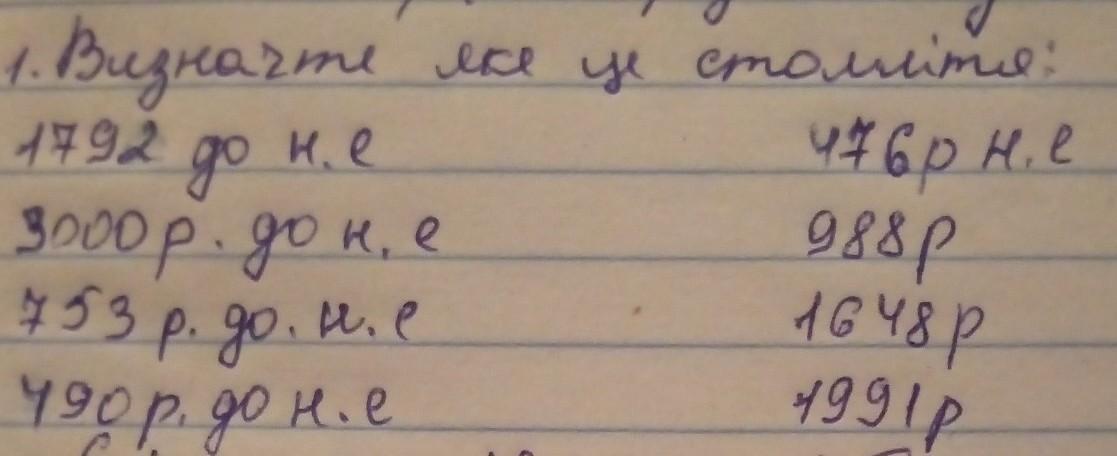 1. Визначте яке це століття:
1792 до н.е 476р н.е
3000р. до н.е 988р
753 р. до. н.е 1648р
490р. до н.е 1991р